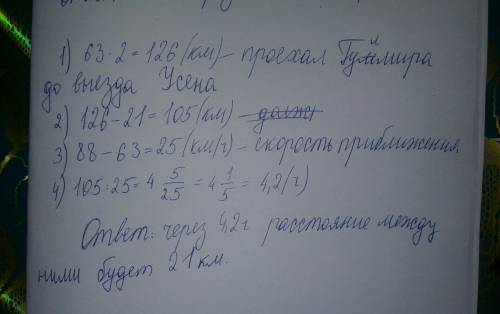 1) 63·2=126(км) – проехал Гулмира
до выезда Усена
2) 126-21=105(км)
3) 88-63=25(км/ч) – скорость приближения
4) 105:25=4 5/25=4 1/5=4,2(ч)
Ответ: через 4,2ч расстояние между
ними будет 21км.